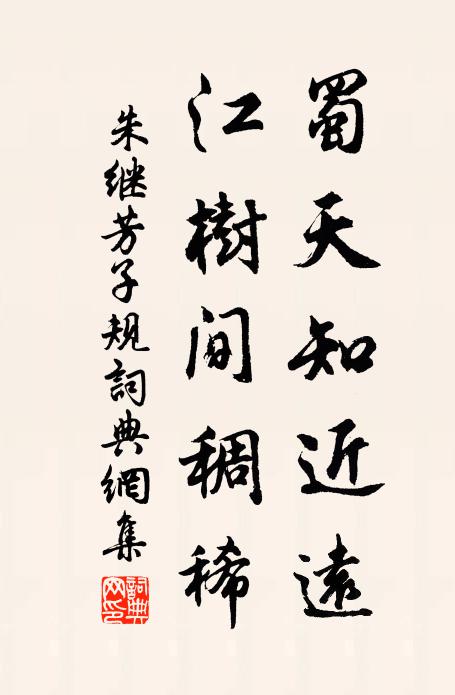 蜀天知近遠
江樹间稠稀
朱继芳子规詞典網集
詞典网印